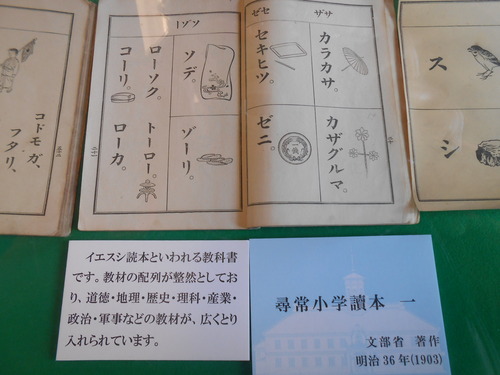 ス
シ
ザサ
カラカサ。
カザグルマ。
ゼセ
セキヒツ。
ゼニ。
ーゾソ
ソデ。
ゾーリ。
ローソク。
コーリ。
トーロー。
ローカ。
コドモガ、
フタリ、
イエスシ読本といわれる教科書
です。教材の配列が整然としてお
り、道徳・地理・歴史・理科・産業・
政治・軍事などの教材が、広くとり
入れられています。
尋常小学讀本 一
文部省 著作
明治36年(1903)